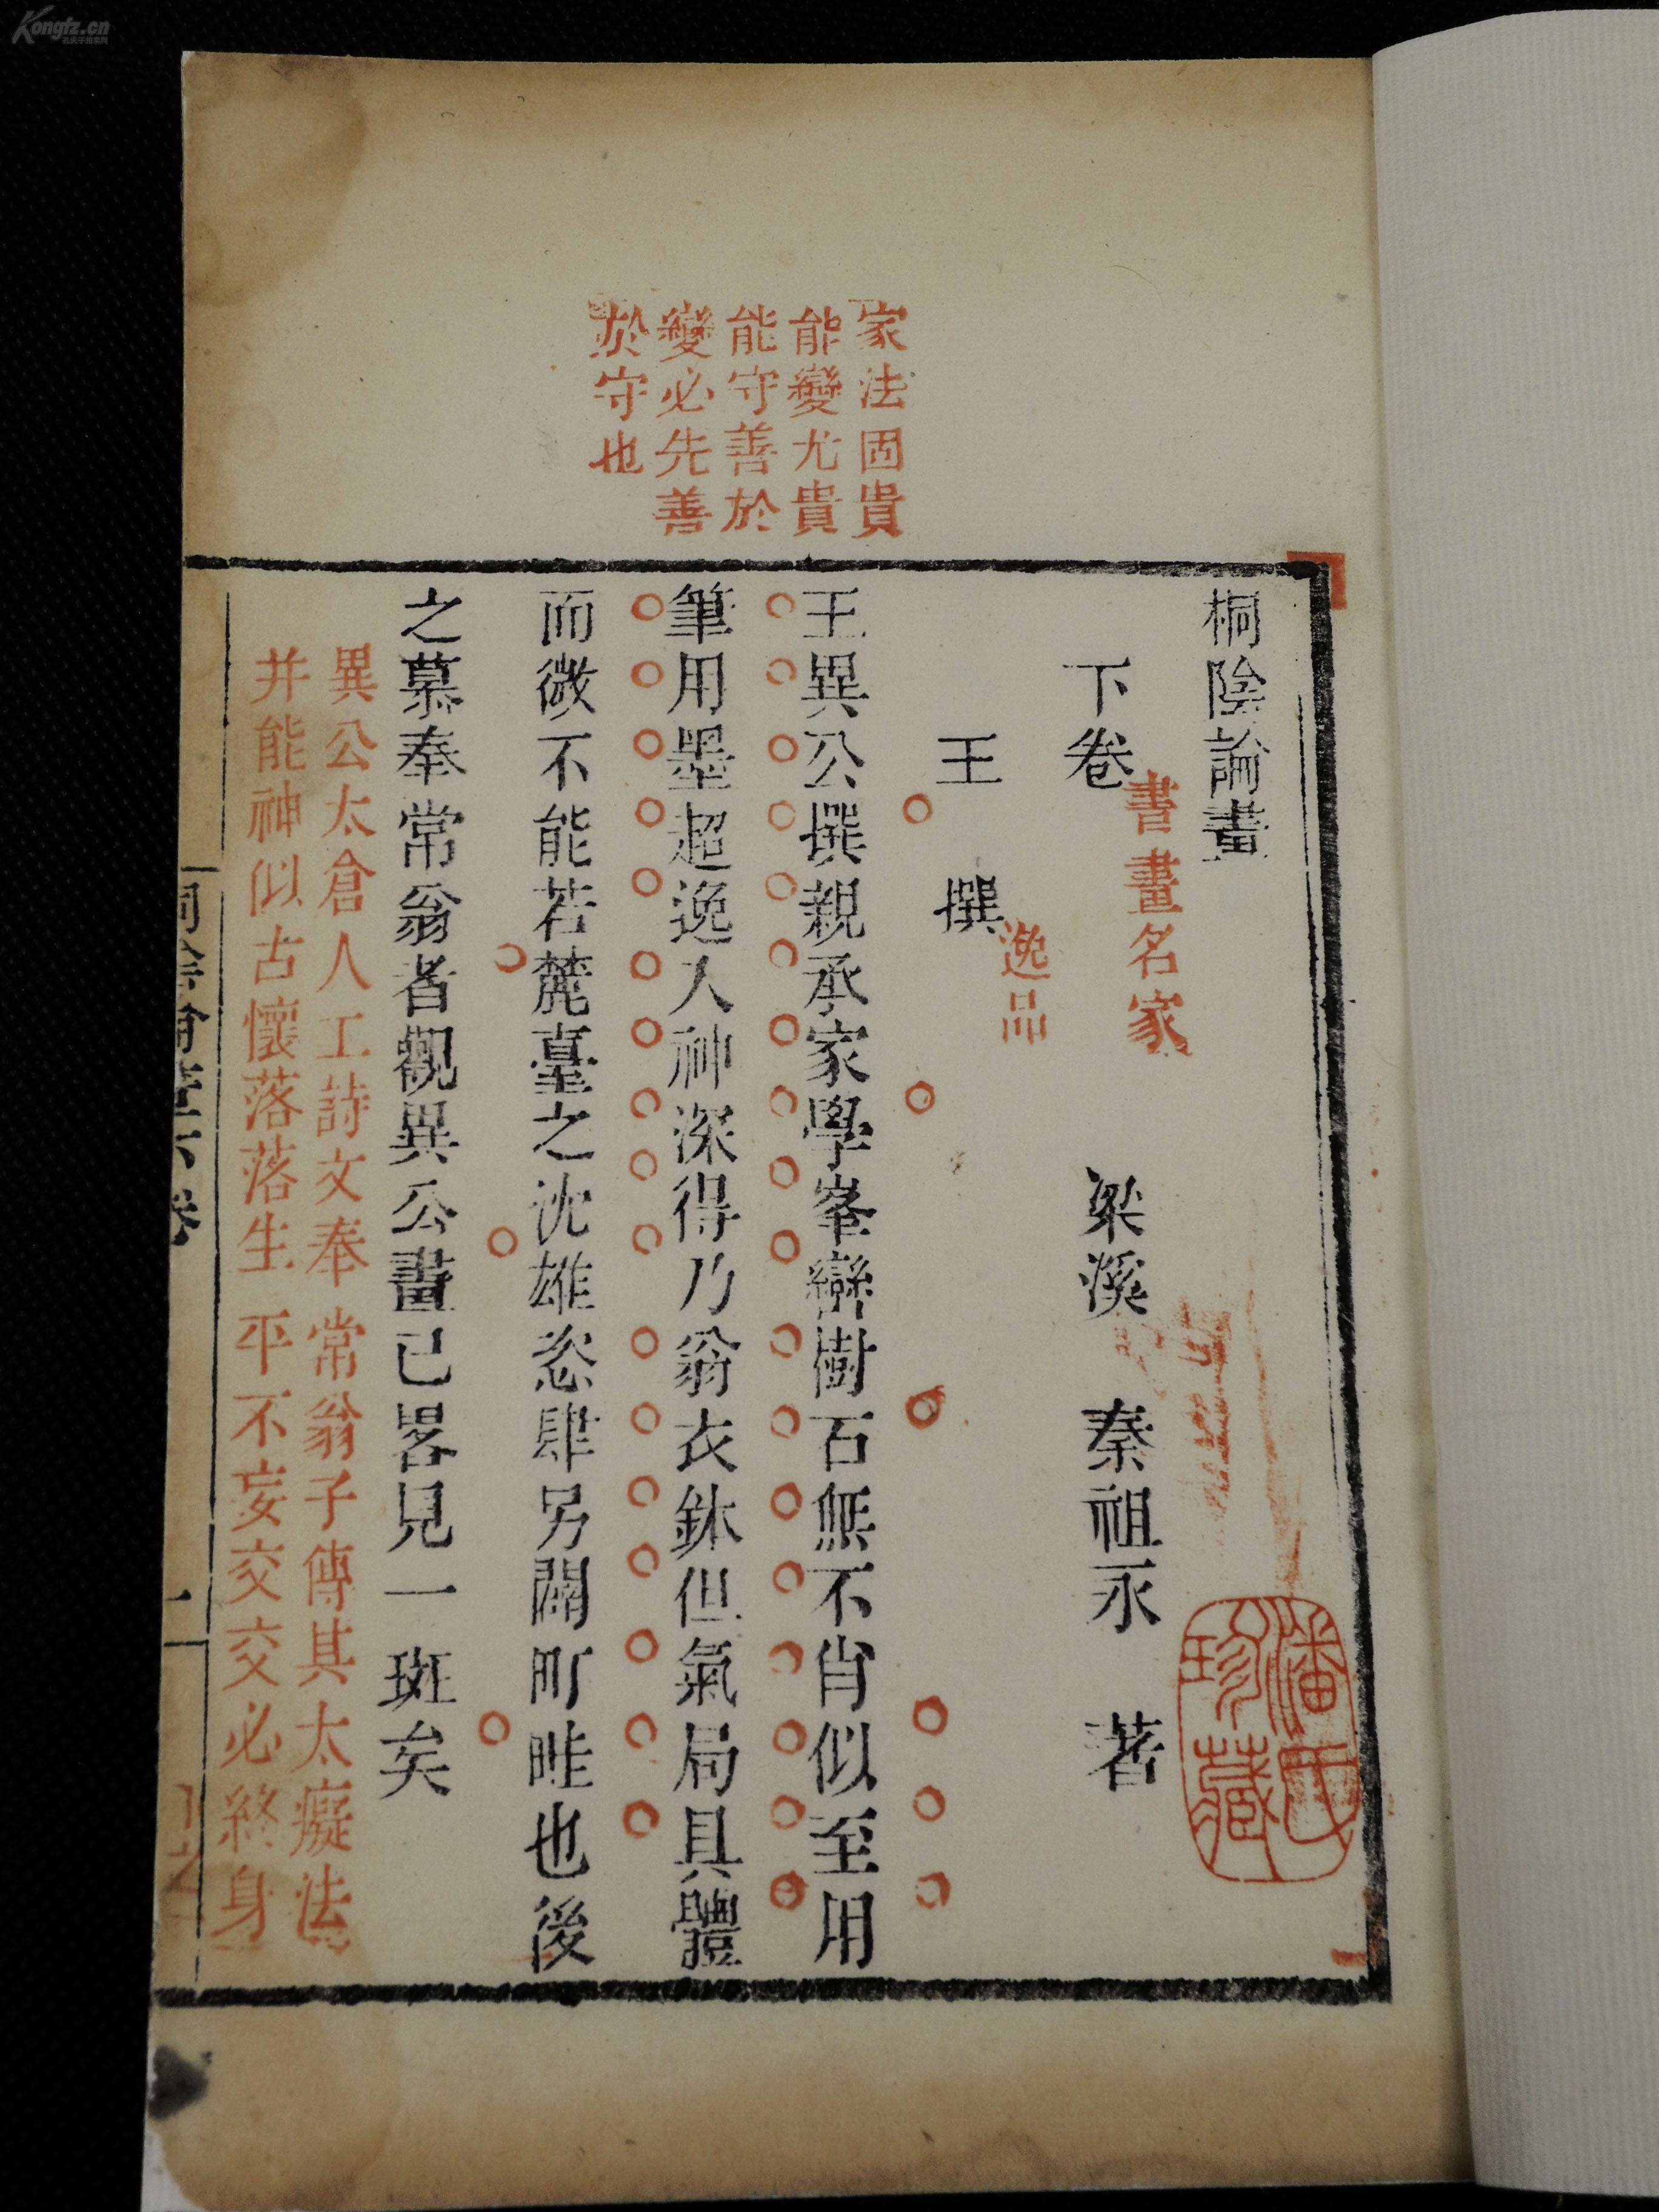 桐陰論畫
下卷 書畫名家
梁溪 秦祖永 著
王 撰 逸品
王異公撰親承家學峯巒樹石無不肖似至用
筆用墨超逸入神深得乃翁衣鉢但氣局具體
而微不能若麓臺之沈雄恣肆另闢町畦也後
之慕奉常翁者觀異公畫已畧見一斑矣
異公太倉人工詩文奉常翁子傳其太癡法
并能神似古懷落落生平不妄交交必終身
家法固貴
能變尤貴
能守善於
變必先善
於守也
潘氏
珍藏
Kongfz.cn